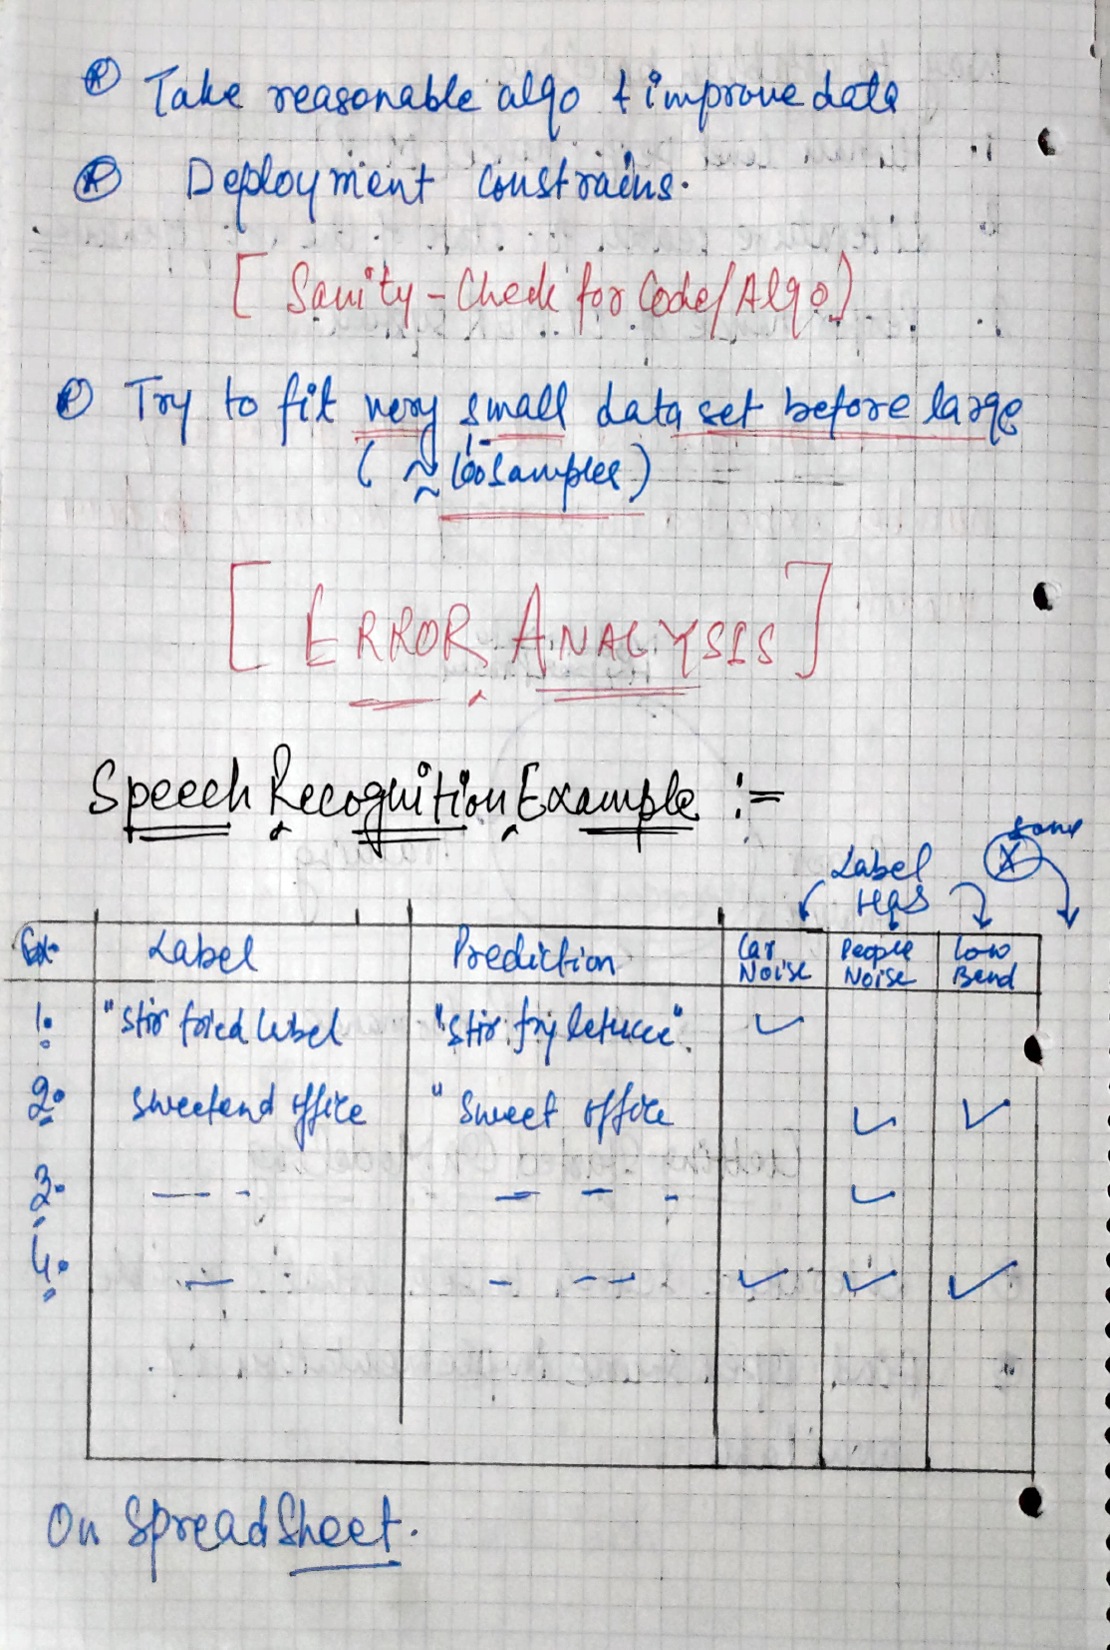 Take reasonable algo & improve data
Deployment constrains.
[Sanity-Check for Code/Algo]
Try to fit very small data set before large
(≈ 100 samples)
[ERROR ANALYSIS]
Speech Recognition Example :=
Label
Ex. Label Prediction Car Noise People Noise Low Band
1. "Stir fried label "Stir fry lettuce". ✓
2. Sweetend office "Sweet office ✓ ✓
3. — - — — - ✓
4. — - -- ✓ ✓ ✓
On SpreadSheet.